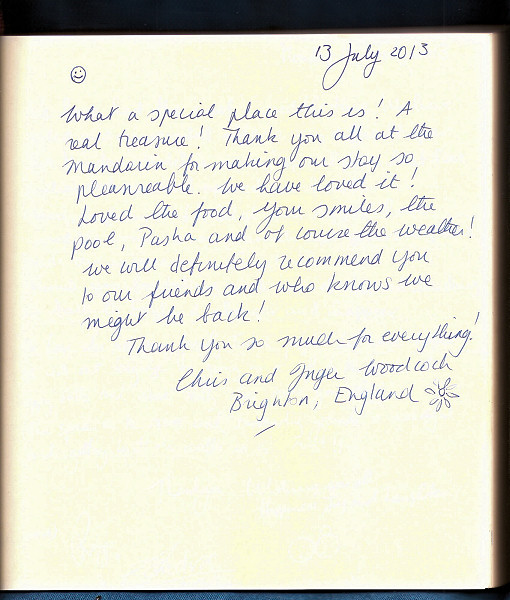 13 July 2013
What a special place this is! A
real treasure! Thank you all at the
Mandarin for making our stay so
pleasureable. We have loved it!
Loved the food, your smiles, the
pool, Pasha and of course the weather!
We will definitely recommend you
to our friends and who knows we
might be back!
Thank you so much for everything!
Chris and Inger Woodcock
Brighton, England